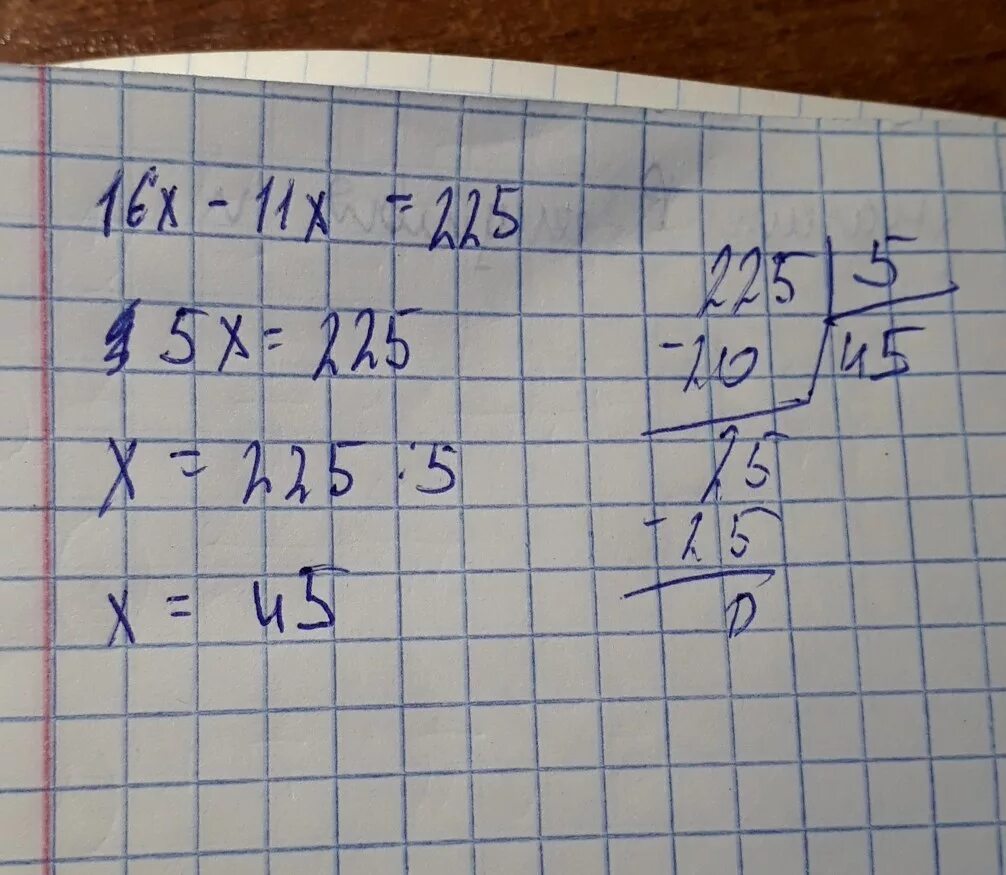 16x - 11x = 225
5x = 225
x = 225 : 5
x = 45
225 | 5
-20 | 45
25
-25
0